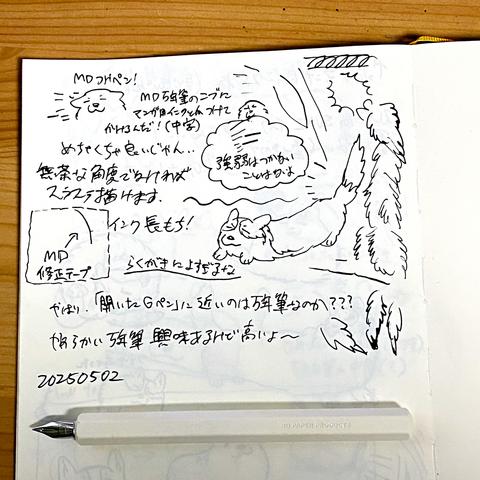 MDつけペン!
MD万年筆のニブに
マンガ用インクとかつけて
かけるんだ!(中字)
めちゃくちゃ良いじゃん..
無茶な角度でなければ
スラスラ描けます.
強弱はつかない
ことはないよ
インク長もち!
MD
修正テープ
らくがきによすぎるな
やはり.「開いたGペン」に近いのは万年筆なのか???
やわらかい万年筆 興味あるけど高いよ〜
20250502
MD PAPER PRODUCTS